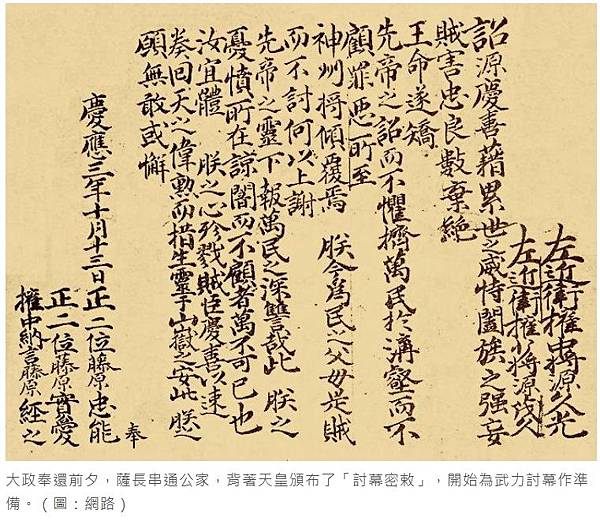 左近衛權中將源久光
左近衛權少將源茂久
詔源慶喜藉累世之威恃闔族之强妄
賊害忠良數棄絶
王命遂矯
先帝之詔而不懼擠萬民於溝壑而不
顧罪惡所至
神州將傾覆焉 朕今為民之父母是賊
而不討何以上謝
先帝之靈下報萬民之深讐哉此 朕之
憂憤所在諒闇而不顧者萬不可已也
汝宜體 朕之心殄戮賊臣慶喜以速
奏回天之偉勳而措生靈于山嶽之安此 朕之
願無敢或懈
奉
慶應三年十月十三日 正二位藤原忠能
正二位藤原實愛
權中納言藤原經之
大政奉還前夕，薩長串通公家，背著天皇頒布了「討幕密敕」，開始為武力討幕作準
備。（圖：網路）